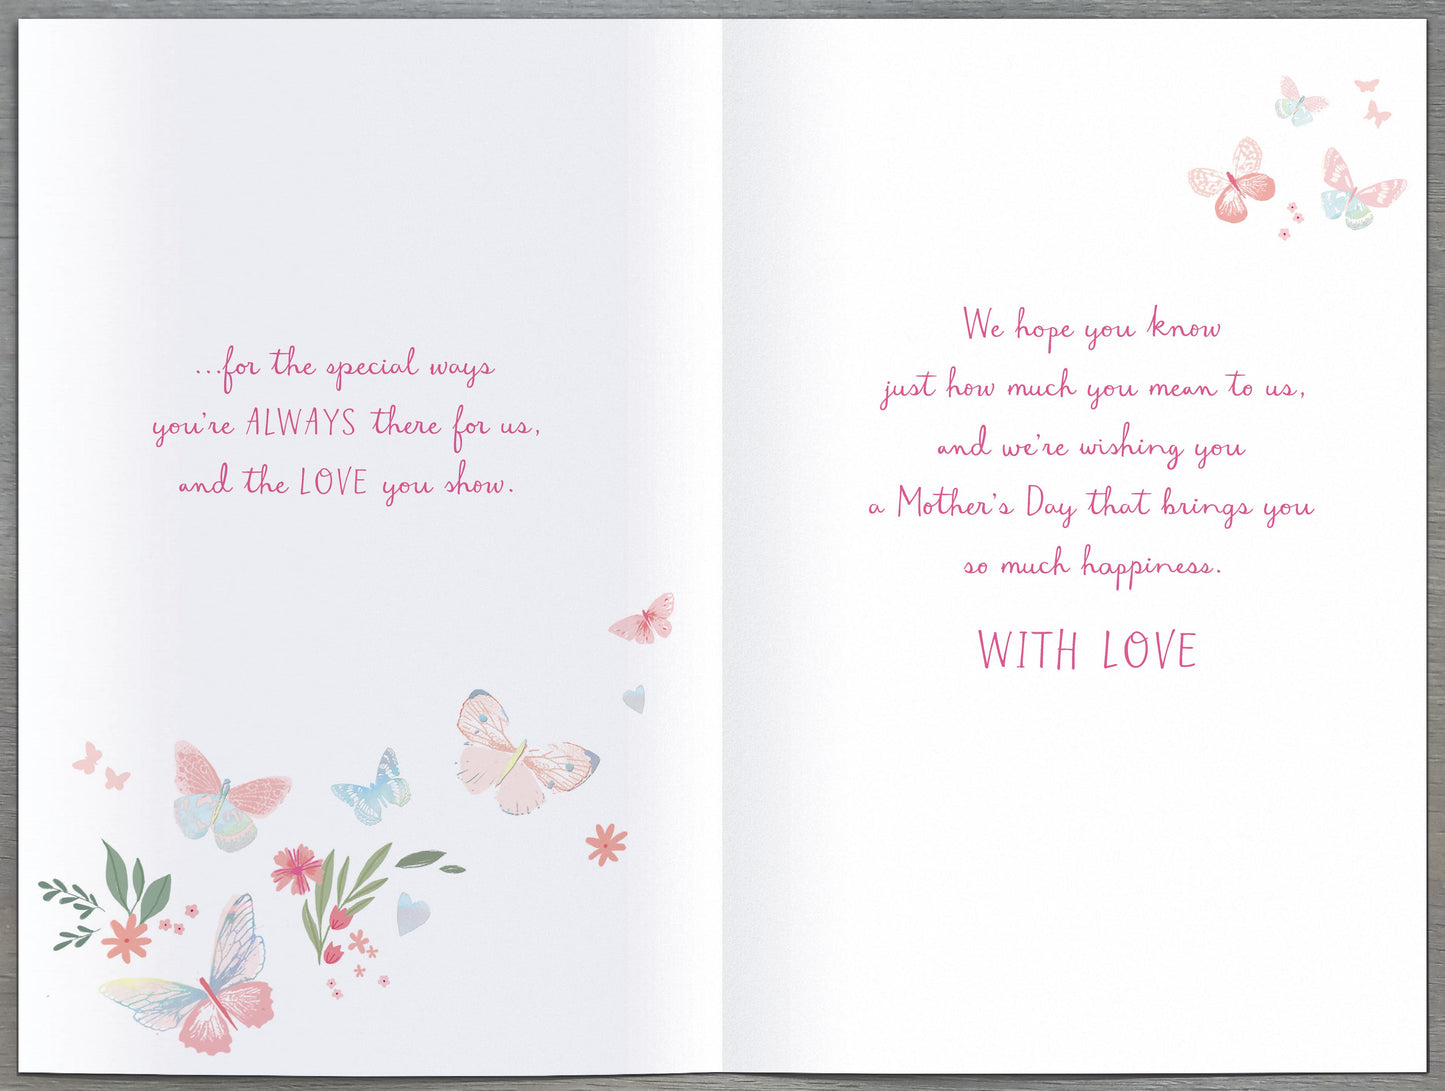 ...for the special ways
you're ALWAYS there for us,
and the LOVE you show.
We hope you know
just how much you mean to us,
and we're wishing you
a Mother's Day that brings you
so much happiness.
WITH LOVE